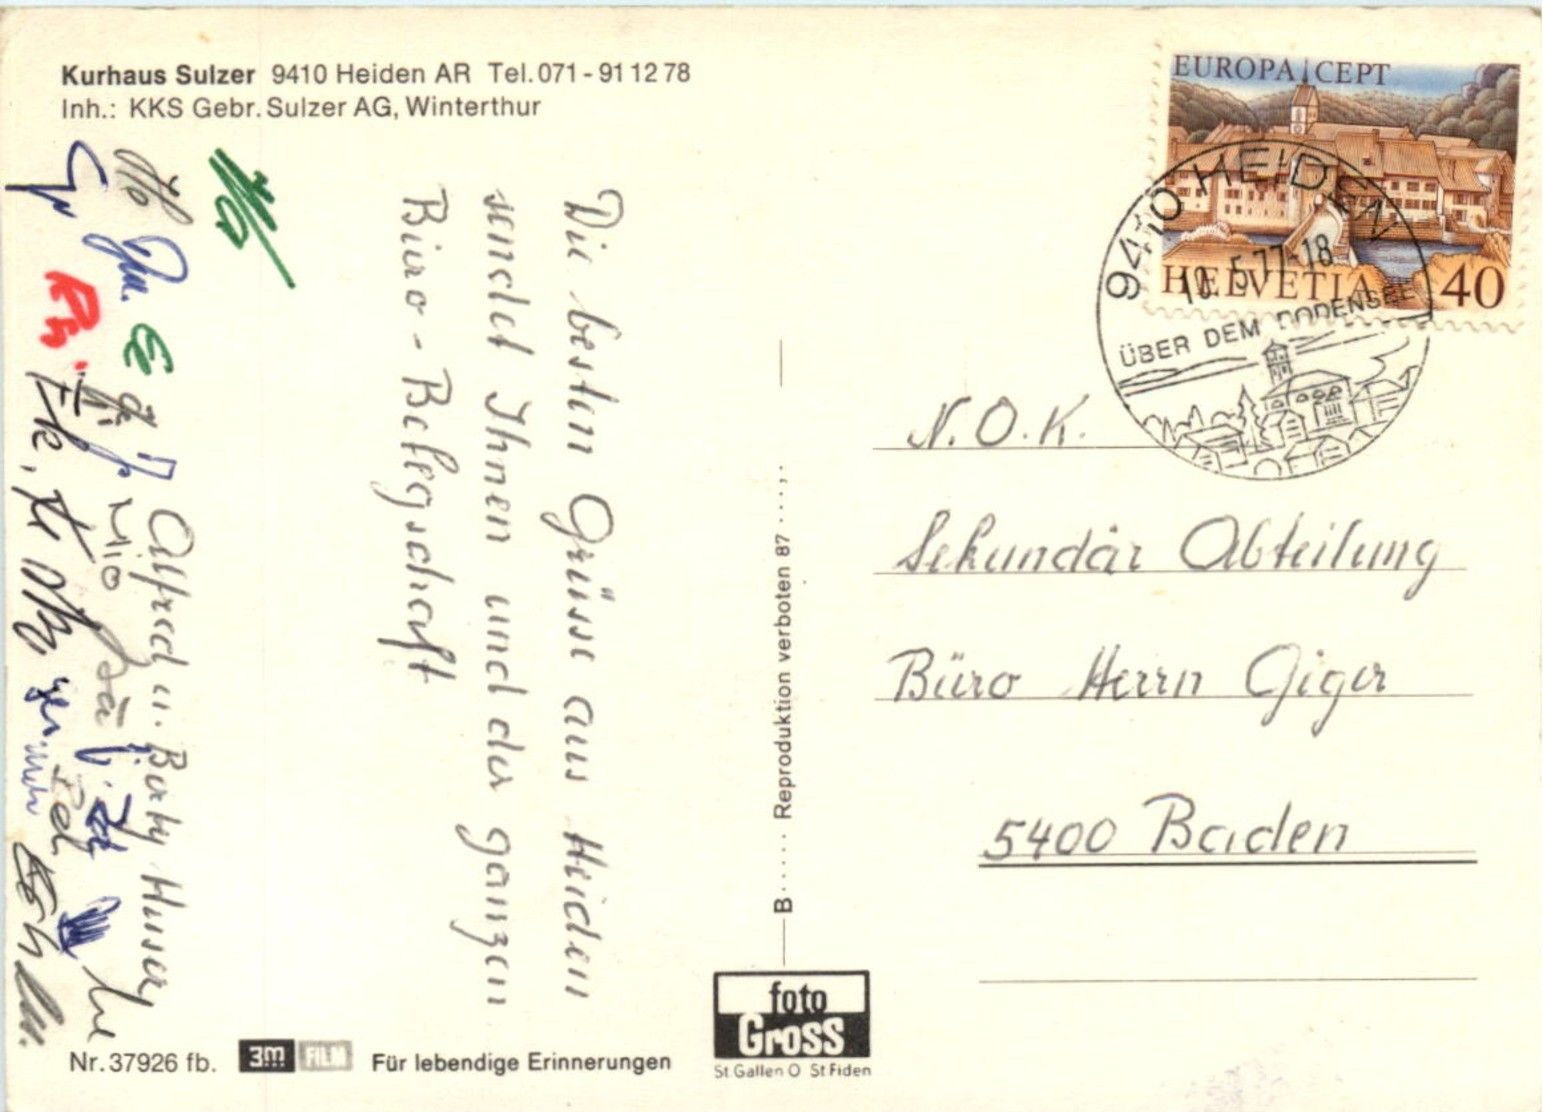 Kurhaus Sulzer 9410 Heiden AR Tel. 071 - 91 12 78
Inh.: KKS Gebr. Sulzer AG, Winterthur
Die besten Grüsse aus Heiden
sendet Ihnen und der ganzen
Büro - Belegschaft
Alfred u. Berty Huser
EUROPA CEPT
HELVETIA 40
9410 HEIDEN
10.5.77-18
ÜBER DEM BODENSEE
N.O.K.
Sekundär Abteilung
Büro Herrn Giger
5400 Baden
B..... Reproduktion verboten 87 ....,.
foto
Gross
St Gallen O St Fiden
Nr. 37926 fb. 3m FILM Für lebendige Erinnerungen